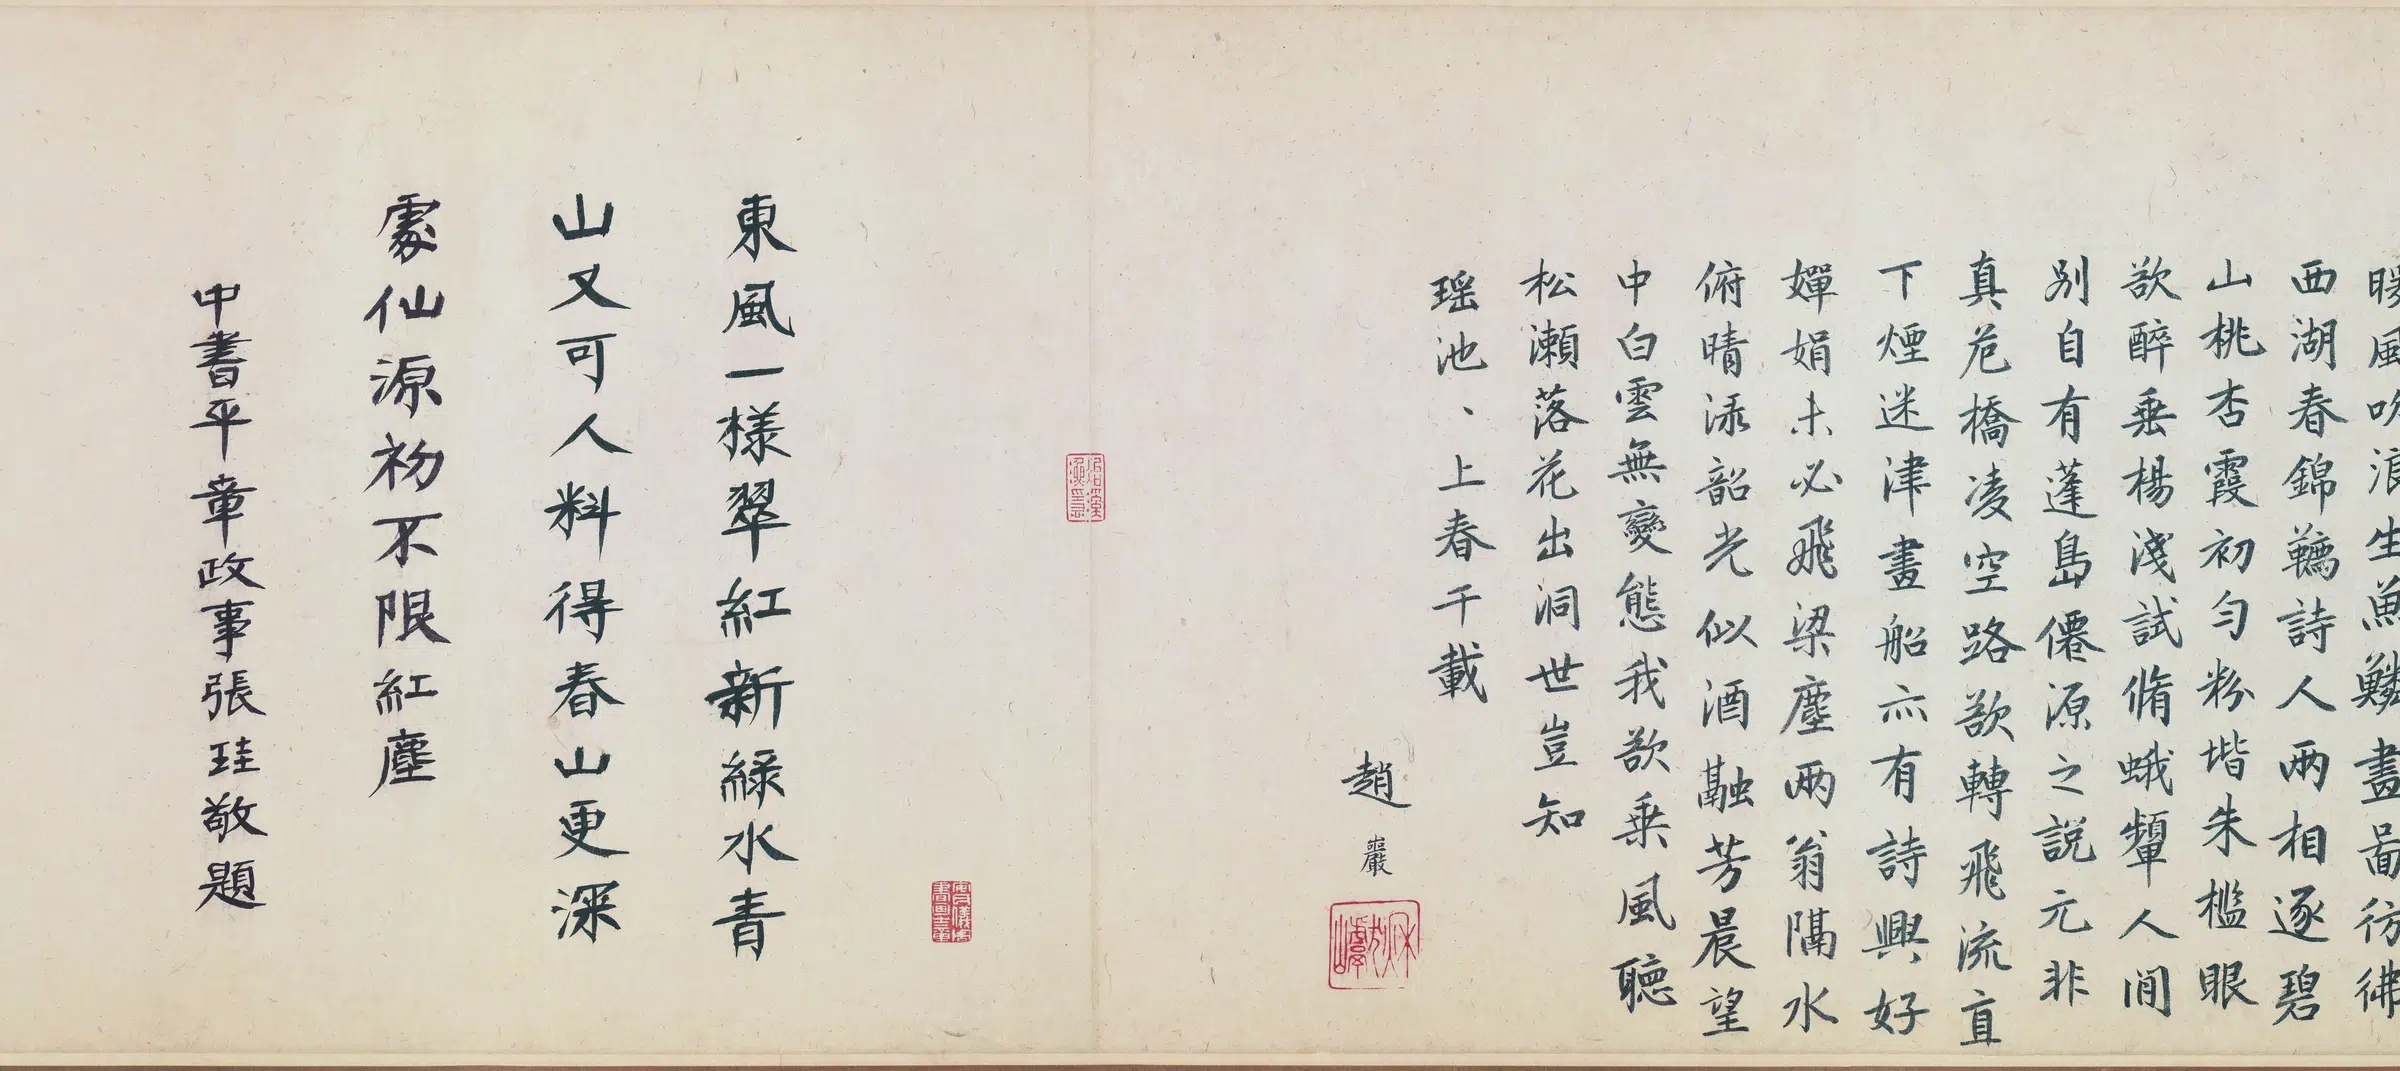 暖風吹浪生魚鱗畫啚彷彿
西湖春錦韉詩人兩相逐碧
山桃杏霞初勻粉堦朱檻眼
欲醉垂楊淺試脩蛾顰人間
别自有蓬島僊源之説元非
真危橋凌空路欲轉飛流直
下煙迷津畫船亦有詩興好
嬋娟未必飛梁塵兩翁隔水
俯晴淥韶光似酒融芳晨望
中白雲無變態我欲乗風聽
松瀬落花出洞世豈知
瑶池、上春千載
趙巖
冶溪漁隱
安儀周書畫之章
東風一樣翠紅新綠水青
山又可人料得春山更深
處仙源初不限紅塵
中書平章政事張珪敬題